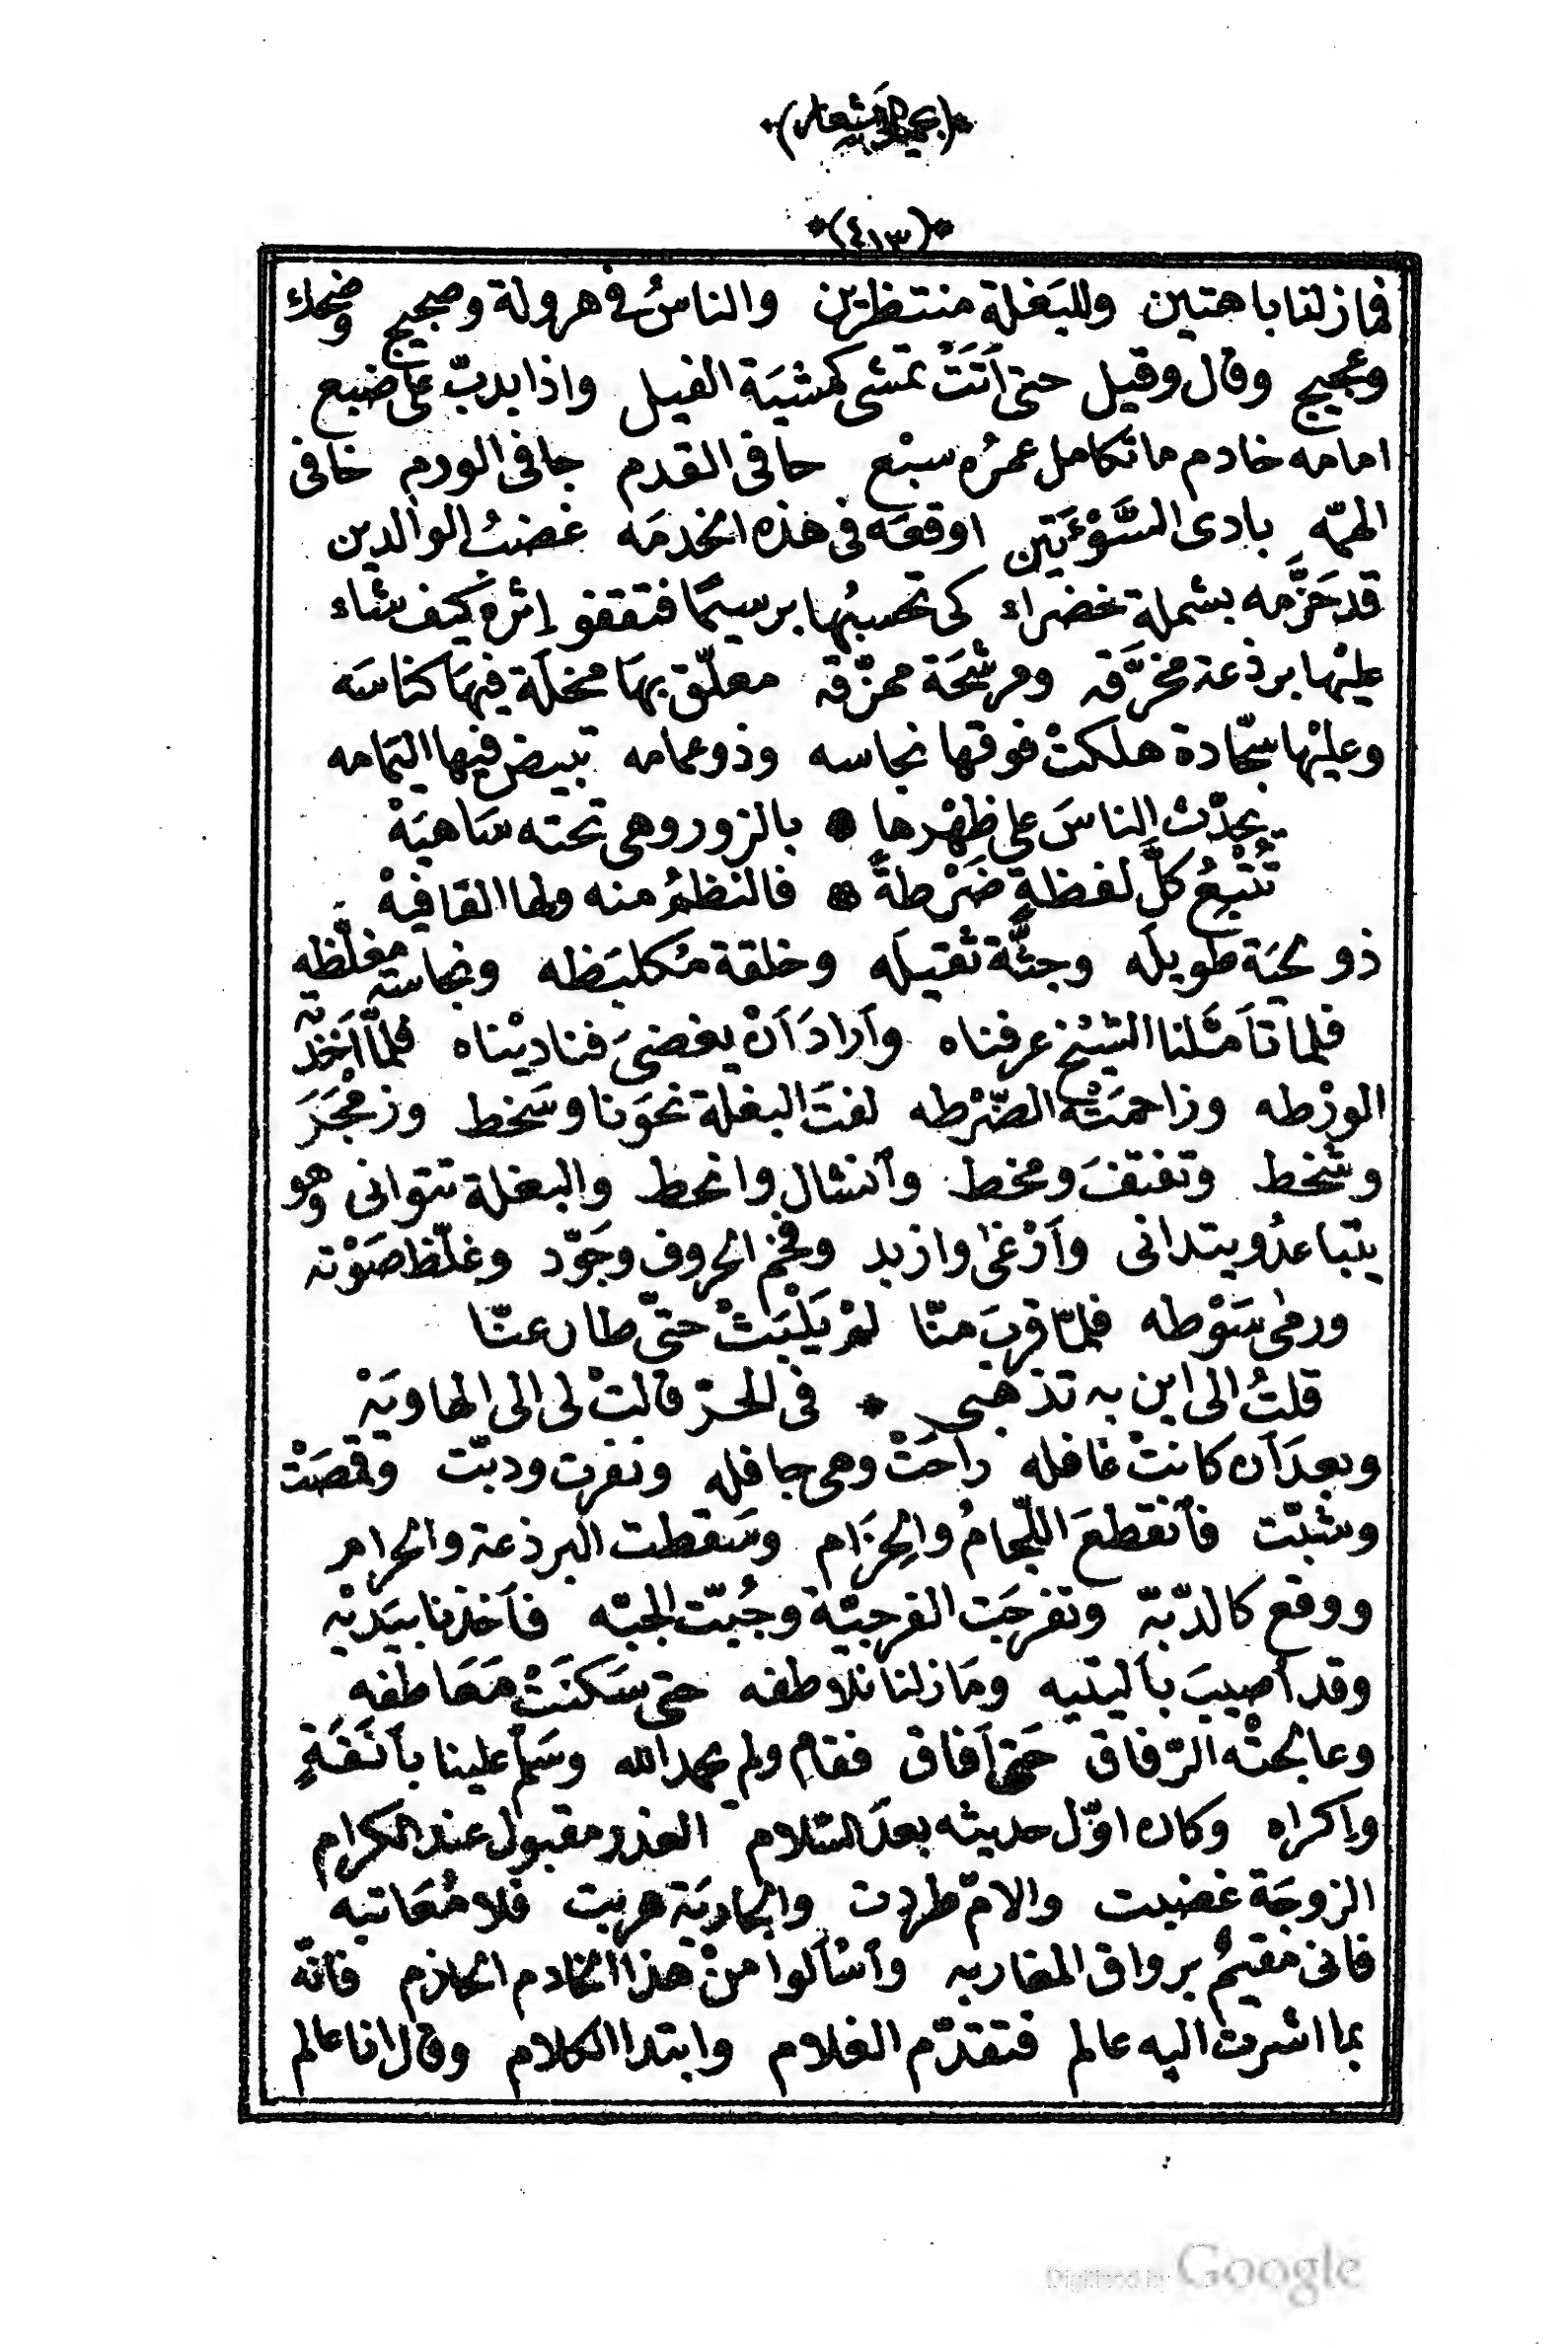 *(٤١٣)*
فما زلنا باهتين وللبَغلة منتظرين والناسُ فى هرولة وضجيج وضحك
وعجيج وقال وقيل حتى أتَتْ تمشى كمشيَة الفيل واذا بدبّ على ضبع
امامه خادم ما تكامل عمرُه سبْع حافى القدم جافى الورم خافى
الهمّه بادى السَّوْءَتين اوقعَه فى هذه الخدمَه غضبُ الوالدين
قد حَزَّمه بشملة خضراء كى تحسبُها برسيمًا فتقفو إثره كيف شاء
عليْها برذعة مخرَّقه ومرشحَة ممزّقه معلّق بهَا مخلَة فيهَا كناسَه
وعليْها سجّادة هلكتْ فوقها نجاسه وذو عمامه تبيض فيها اليمامه
يحدّث الناسَ على ظهْرها بالزور وهى تحته سَاهيَهْ
تُتْبعُ كلَّ لفظةٍ ضَرْطةً فالنظمُ منه ولها القافيهْ
ذو لحيَة طويله وجثَّة ثقيله وخلقة مُكلبَظه ونجاسة مغلّظه
فلما تأمّلنا الشيْخ عرفناه وأرادَ أنْ يغضىَ فناديْناه فلمّا أخَذتْه
الورْطه وزاحمَتْه الضّرْطه لفتَ البغلة نحوَنا وسَخط وزمْجَرَ
وشخط وتفتفَ ومخط وأنشال وانحط والبغلة تتوانى وهو
يتباعدُ ويتدانى وأرْغى وازبد وفخّم الحروف وجَوّد وغلّظ صَوْته
ورمى سَوْطه فلمّا قربَ منّا لمْ يَلْبَثْ حتّى طار عنّا
قلتُ الى اين به تذهبى * فى الحرّ قالتْ لى الى الهاويَهْ
وبعدَ أن كانتْ غافله راحَتْ وهى جافله ونفرت ودبّت وقمصَتْ
وشبّت فأنقطعَ اللّجامُ والحِزَام وسَقطت البرذعة والحرام
ووقع كالدّبّة وتفرجَت الفرجيّة وجُبّت الجبّه فأخذنا بيَديْه
وقد أصيبَ بأليتيه ومَا زلنا نلاطفه حتى سَكنَتْ مَعَاطفه
وعالجتْه الرّفاق حتى أفاق فقام ولم يحمد الله وسَلّم علينا بأنَفَةٍ
وإكراه وكان اوّل حديثه بعدَ السّلام العذر مقبول عند الكرام
الزوجَة غضبت والامّ طردت والجاريَة هربت فلا مُعَاتبه
فانى مقيمٌ برواق المغاربه وأسْألوا منْ هذا الخادم الحاذم فانّه
بما اشرت اليه عالم فتقدّم الغلام وابتدا الكلام وقال انا عالم
Digitized by Google